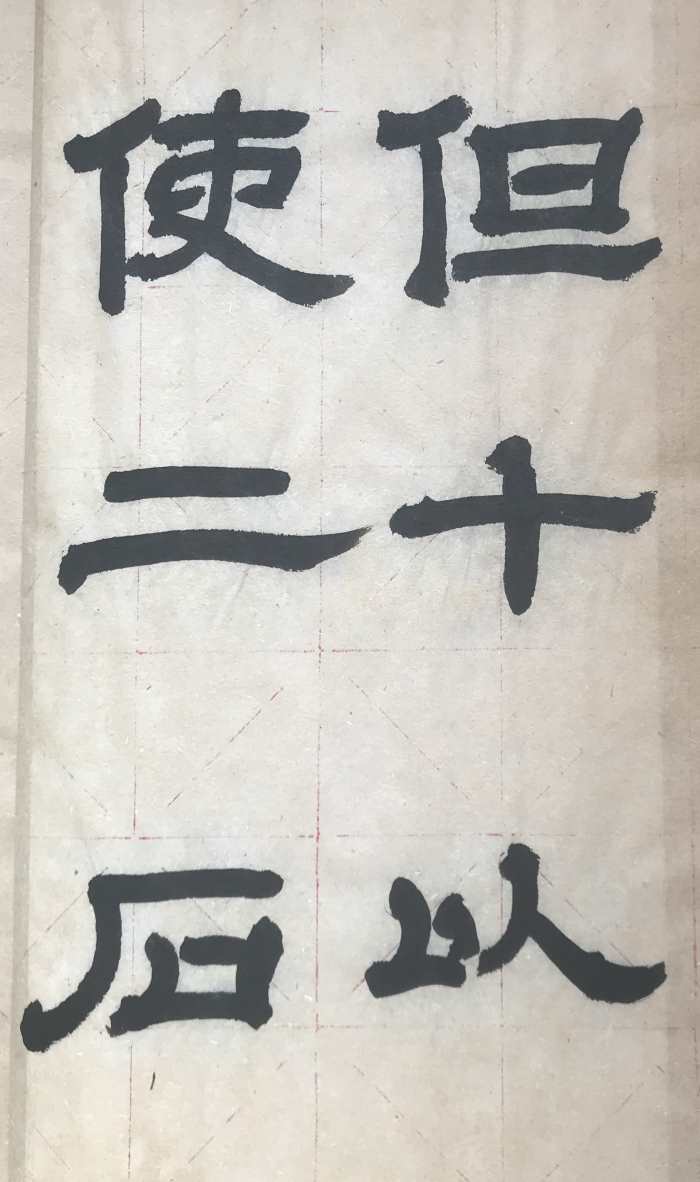 但十以
使二石